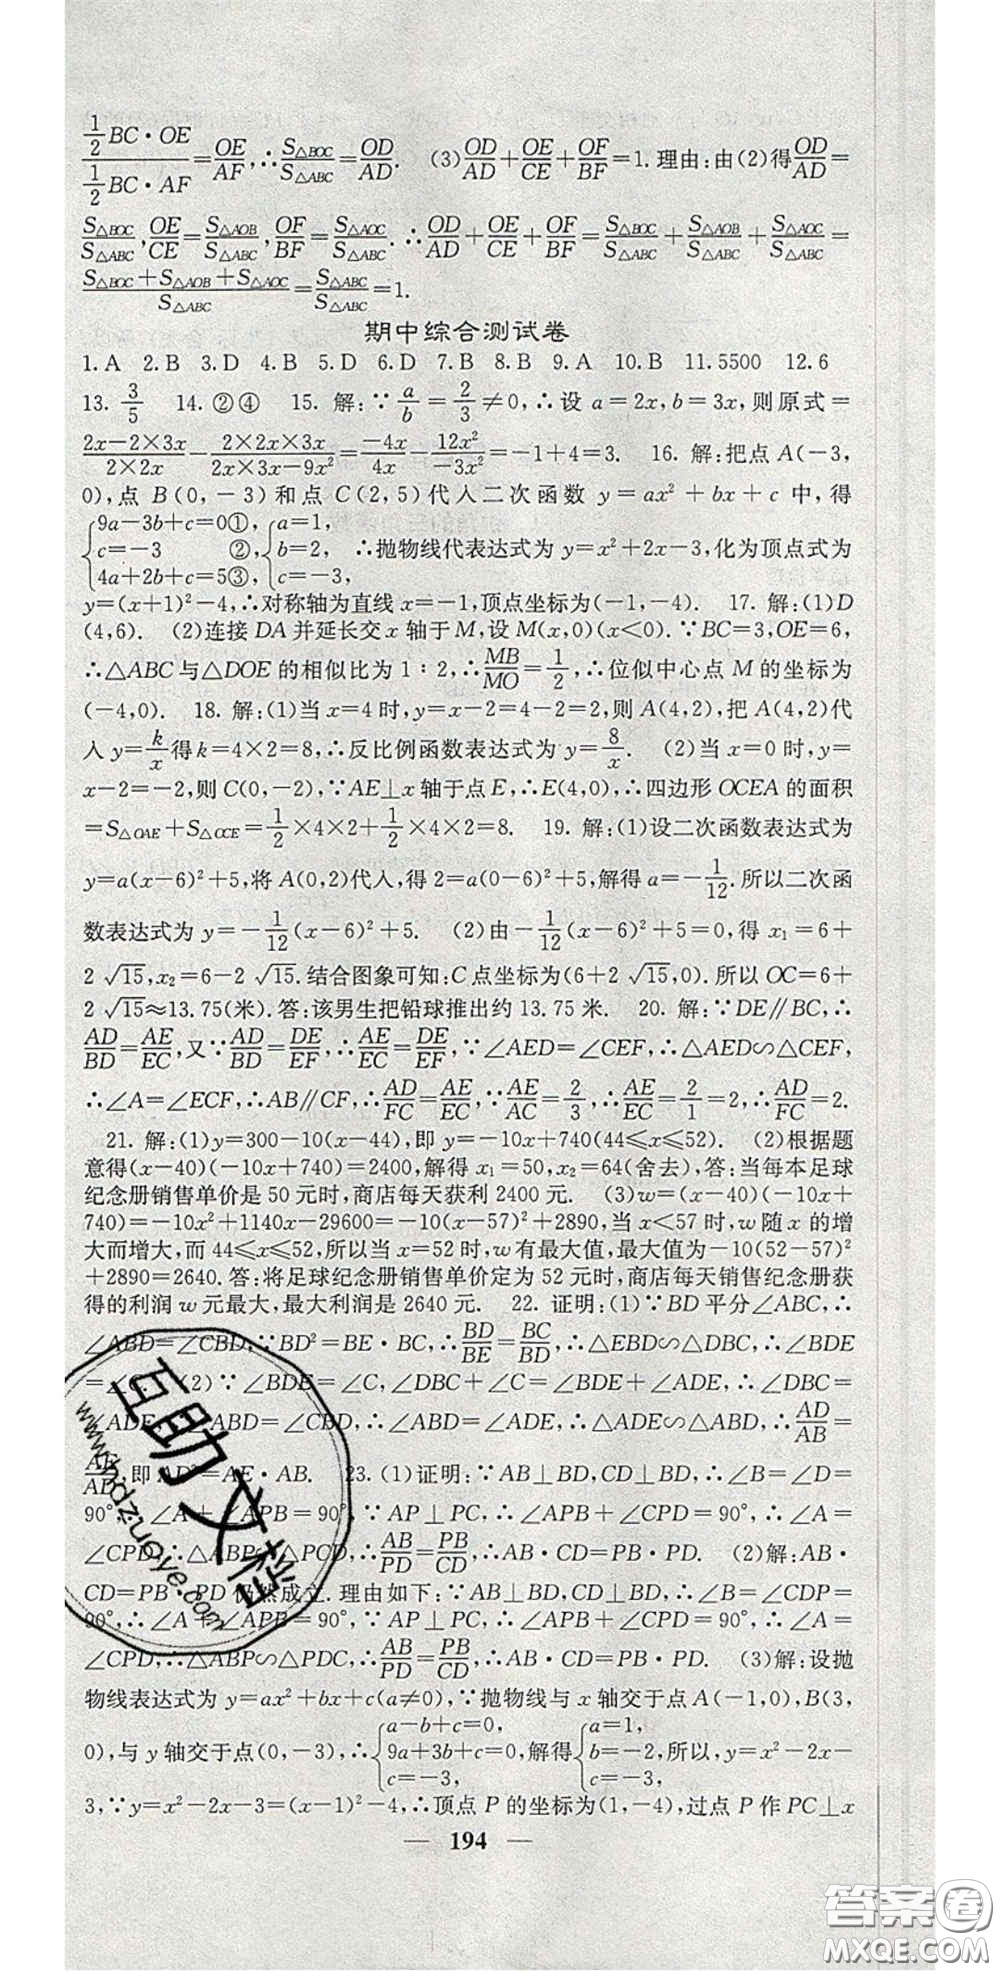 ½BC·OE/½BC·AF=OE/AF,∴S△BOC/S△ABC=OD/AD. (3)OD/AD+OE/CE+OF/BF=1.理由:由(2)得OD/AD=
S△BOC/S△ABC,OE/CE=S△AOB/S△ABC,OF/BF=S△AOC/S△ABC.∴OD/AD+OE/CE+OF/BF=S△BOC/S△ABC+S△AOB/S△ABC+S△AOC/S△ABC=
(S△BOC+S△AOB+S△AOC)/S△ABC=S△ABC/S△ABC=1.
期中综合测试卷
1.A 2.B 3.D 4.B 5.D 6.D 7.B 8.B 9.A 10.B 11.5500 12.6
13. 3/5 14.②④ 15.解:∵a/b=2/3≠0,∴设 a=2x,b=3x,则原式=
(2x-2×3x)/(2×2x)-(2×2x×3x)/(2x×3x-9x²)=-4x/4x-12x²/-3x²=-1+4=3. 16.解:把点A(-3,
0),点 B(0,-3)和点 C(2,5)代人二次函数 y=ax²+bx+c 中,得
{9a-3b+c=0①, {a=1,
c=-3 ②, b=2, ∴抛物线代表达式为 y=x²+2x-3,化为顶点式为
4a+2b+c=5③, c=-3,
y=(x+1)²-4,∴对称轴为直线 x=-1,顶点坐标为(-1,-4). 17.解:(1)D
(4,6). (2)连接 DA 并延长交 x 轴于 M,设 M(x,0)(x<0).∵BC=3,OE=6,
∴△ABC与△DOE 的相似比为 1∶2,∴MB/MO=1/2,∴位似中心点 M 的坐标为
(-4,0). 18.解:(1)当 x=4 时,y=x-2=4-2=2,则 A(4,2),把 A(4,2)代
入 y=k/x得 k=4×2=8,∴反比例函数表达式为 y=8/x. (2)当 x=0 时,y=
x-2=-2,则 C(0,-2),∵AE⊥x 轴于点 E,∴E(4,0),∴四边形 OCEA 的面积
=S△OAE+S△OCE=1/2×4×2+1/2×4×2=8. 19.解:(1)设二次函数表达式为
y=a(x-6)²+5,将 A(0,2)代入,得 2=a(0-6)²+5,解得 a=-1/12.所以二次函
数表达式为 y=-1/12(x-6)²+5. (2)由-1/12(x-6)²+5=0,得 x₁=6+
2√15,x₂=6-2√15.结合图象可知:C 点坐标为(6+2√15,0).所以 OC=6+
2√15≈13.75(米).答:该男生把铅球推出约 13.75 米. 20.解:∵DE∥BC,∴
AD/BD=AE/EC,又∵AD/BD=DE/EF,∴AE/EC=DE/EF,∵∠AED=∠CEF,∴△AED∽△CEF,
∴∠A=∠ECF,∴AB∥CF,∴AD/FC=AE/EC,∵AE/AC=2/3,∴AE/EC=2/1=2,∴AD/FC=2.
21.解:(1)y=300-10(x-44),即 y=-10x+740(44≤x≤52). (2)根据题
意得(x-40)(-10x+740)=2400,解得 x₁=50,x₂=64(舍去),答:当每本足球
纪念册销售单价是 50 元时,商店每天获利 2400 元. (3)w=(x-40)(-10x+
740)=-10x²+1140x-29600=-10(x-57)²+2890,当 x<57 时,w 随 x 的增
大而增大,而 44≤x≤52,所以当 x=52 时,w 有最大值,最大值为-10(52-57)²
+2890=2640.答:将足球纪念册销售单价定为 52 元时,商店每天销售纪念册获
得的利润 w 元最大,最大利润是 2640 元. 22.证明:(1)∵BD 平分∠ABC,∴
∠ABD=∠CBD,∵BD²=BE·BC,∴BD/BE=BC/BD,∴△EBD∽△DBC,∴∠BDE
=∠C. (2)∵∠BDE=∠C,∠DBC+∠C=∠BDE+∠ADE,∴∠DBC=
∠ADE,∵∠ABD=∠CBD,∴∠ABD=∠ADE,∴△ADE∽△ABD,∴AD/AB=
AE/AD,即 AD²=AE·AB. 23.(1)证明:∵AB⊥BD,CD⊥BD,∴∠B=∠D=
90°,∴∠A+∠APB=90°,∵AP⊥PC,∴∠APB+∠CPD=90°,∴∠A=
∠CPD,∴△ABP∽△PCD,∴AB/PD=PB/CD,∴AB·CD=PB·PD. (2)解:AB·
CD=PB·PD 仍然成立.理由如下:∵AB⊥BD,CD⊥BD,∴∠B=∠CDP=
90°,∴∠A+∠APB=90°,∵AP⊥PC,∴∠APB+∠CPD=90°,∴∠A=
∠CPD,∴△ABP∽△PDC,∴AB/PD=PB/CD,∴AB·CD=PB·PD. (3)解:设抛
物线表达式为 y=ax²+bx+c(a≠0),∵抛物线与 x 轴交于点 A(-1,0),B(3,
{a-b+c=0, {a=1,
0),与 y 轴交于点(0,-3),∴9a+3b+c=0,解得b=-2,所以,y=x²-2x-
c=-3, c=-3,
3,∵y=x²-2x-3=(x-1)²-4,∴顶点 P 的坐标为(1,-4),过点 P 作 PC⊥x
— 194 —
互助文档
www.hdzuoye.com
答案圈
MXQE.COM